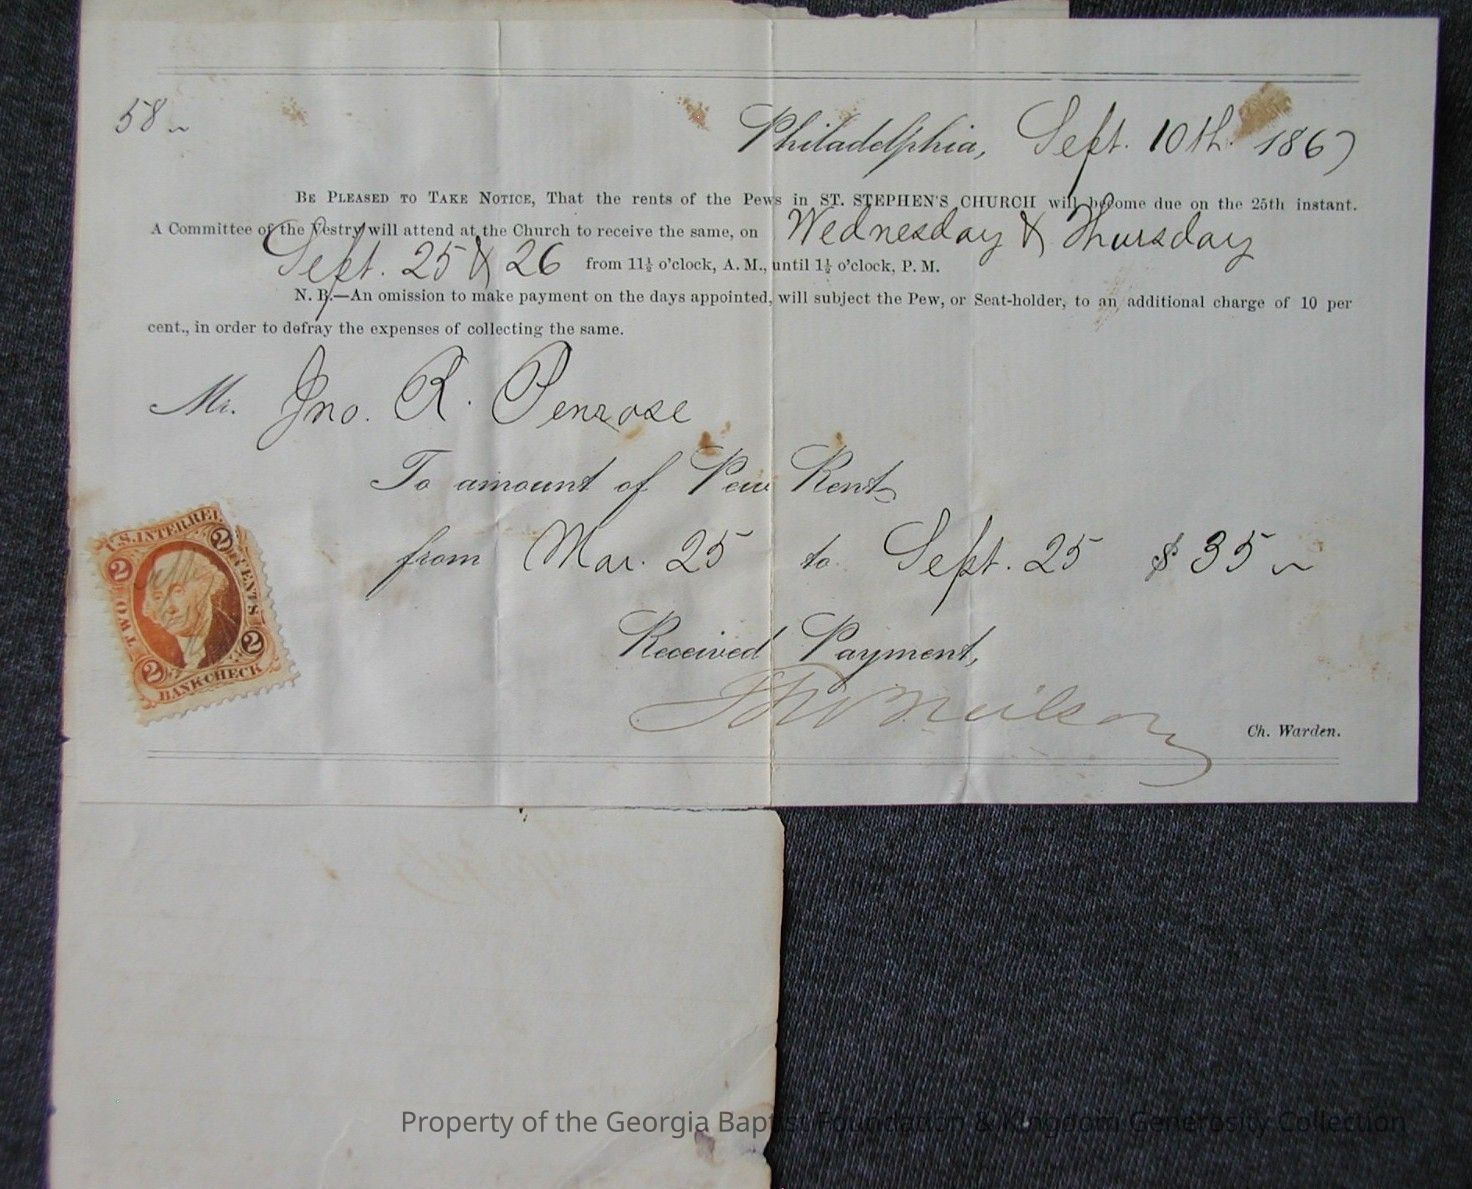 58~
Philadelphia, Sept. 10th 1867
BE PLEASED TO TAKE NOTICE, That the rents of the Pews in ST. STEPHEN'S CHURCH will become due on the 25th instant.
A Committee of the Vestry will attend at the Church to receive the same, on Wednesday & Thursday
Sept. 25 & 26 from 11½ o'clock, A. M., until 1½ o'clock, P. M.
N. B.—An omission to make payment on the days appointed, will subject the Pew, or Seat-holder, to an additional charge of 10 per
cent., in order to defray the expenses of collecting the same.
Mr. Jno. R. Penrose
To amount of Pew Rent
from Mar. 25 to Sept. 25 $35~
Received Payment,
Neilson
Ch. Warden.
U.S. INTER. REV.
2 2
TWO CENTS
2 2
BANK CHECK
Property of the Georgia Baptist Foundation & Kingdom Generosity Collection